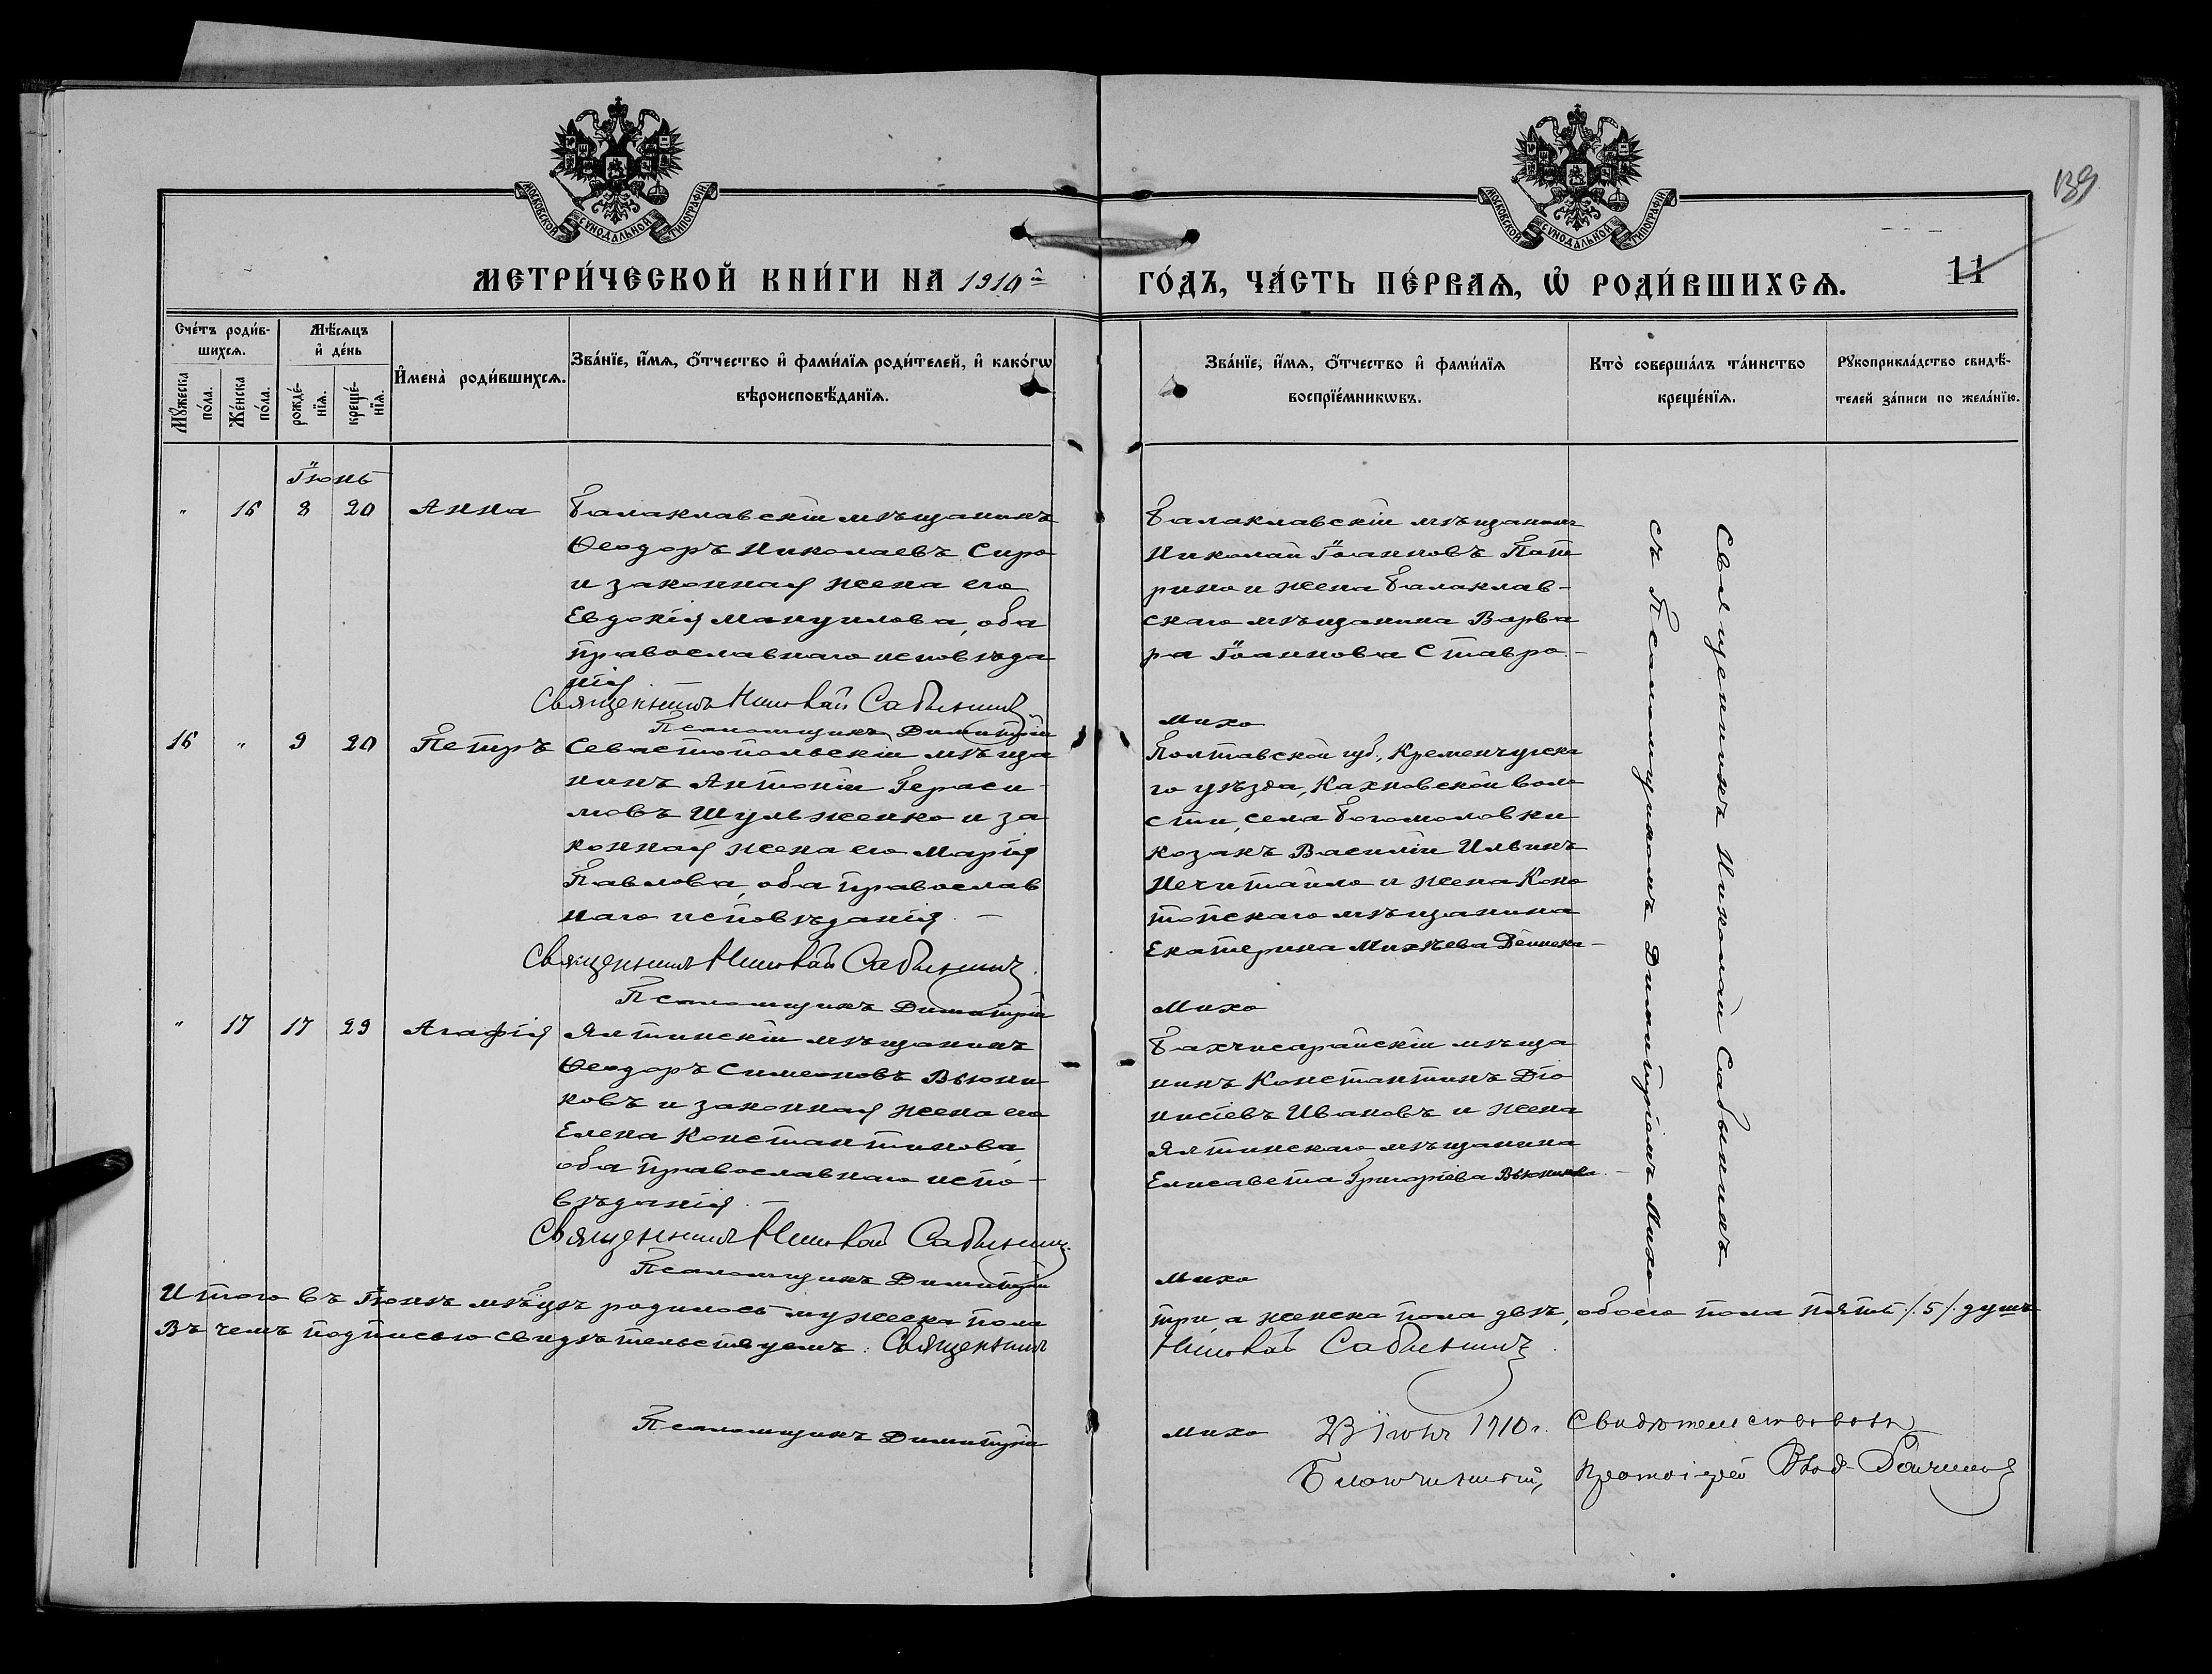 139
МОСКОВСКОЙ СѴНОДАЛЬНОЙ ТИПОГРАФІИ
МОСКОВСКОЙ СѴНОДАЛЬНОЙ ТИПОГРАФІИ
МЕТРИ́ЧЕСКОЙ КНИ́ГИ НА 1910й ГО́ДЪ, ЧА́СТЬ ПЕ́РВАѦ, Ѡ҆ РОДИ́ВШИХСѦ.
11
Сче́тъ роди́в-
шихсѧ.
Мꙋ́жеска по́ла.
Же́нска по́ла.
Мѣ́сѧцъ
и҆ де́нь
рожде́-нїѧ.
креще́-нїѧ.
И҆мена̀ роди́вшихсѧ.
Зва́нїе, и҆́мѧ, ѻ҆́тчество и҆ фами́лїѧ роди́телей, и҆ како́гѡ
вѣроисповѣ́данїѧ.
Зва́нїе, и҆́мѧ, ѻ҆́тчество и҆ фами́лїѧ
воспрїе́мникѡвъ.
Кто̀ соверша́лъ та́инство
креще́нїѧ.
Рꙋкоприкла́дство свидѣ́-
телей за́писи по жела́нїю.
Іюнь
" 16 8 20 Анна
Балаклавскій мѣщанинъ
Ѳеодоръ Николаевъ Спиро
и законная жена его
Евдокія Мануилова, оба
православнаго исповѣда
нія
Священникъ Николай Сабынинъ
Псаломщикъ Димитрій
Балаклавскій мѣщанинъ
Николай Іоанновъ Пат
рино и жена Балаклав-
скаго мѣщанина Варва
ра Іоаннова Ставро.-
Михо
16 " 9 20 Петръ
Севастопольскій мѣща
нинъ Антоній Гераси-
мовъ Шульженко и за
конная жена его Марія
Павлова, оба православ
наго исповѣданія. —
Священникъ Николай Сабынинъ
Псаломщикъ Димитрій
Полтавской губ., Кременчугска
го уѣзда, Кахновской воло
сти, села Богомоловки
козакъ Василій Ильинъ
Нечитайло и жена Коно
топскаго мѣщанина
Екатерина Михѣева Дейнека-
Михо
" 17 17 29 Агафія
Ялтинскій мѣщанинъ
Ѳеодоръ Симеоновъ Вьюни
ковъ и законная жена его
Елена Константинова,
оба православнаго испо-
вѣданія. —
Священникъ Николай Сабынинъ
Псаломщикъ Димитрій
Бахчисарайскій мѣща
нинъ Константинъ Діо
нисіевъ Ивановъ и жена
Ялтинскаго мѣщанина
Елисавета Григоріева Вьюникова.-
Михо
Священникъ Николай Сабынинъ
съ Псаломщикомъ Димитріемъ Михо
Итого въ Іюнѣ мѣсяцѣ родилось мужеска пола три, а женска пола двѣ, обоего пола пять /.5/. душъ
Въ чемъ подписью свидѣтельствуемъ: Священникъ Николай Сабынинъ
Псаломщикъ Димитрій Михо
23 Іюля 1910 г. Свидѣтельствовалъ
Благочинный, Протоіерей